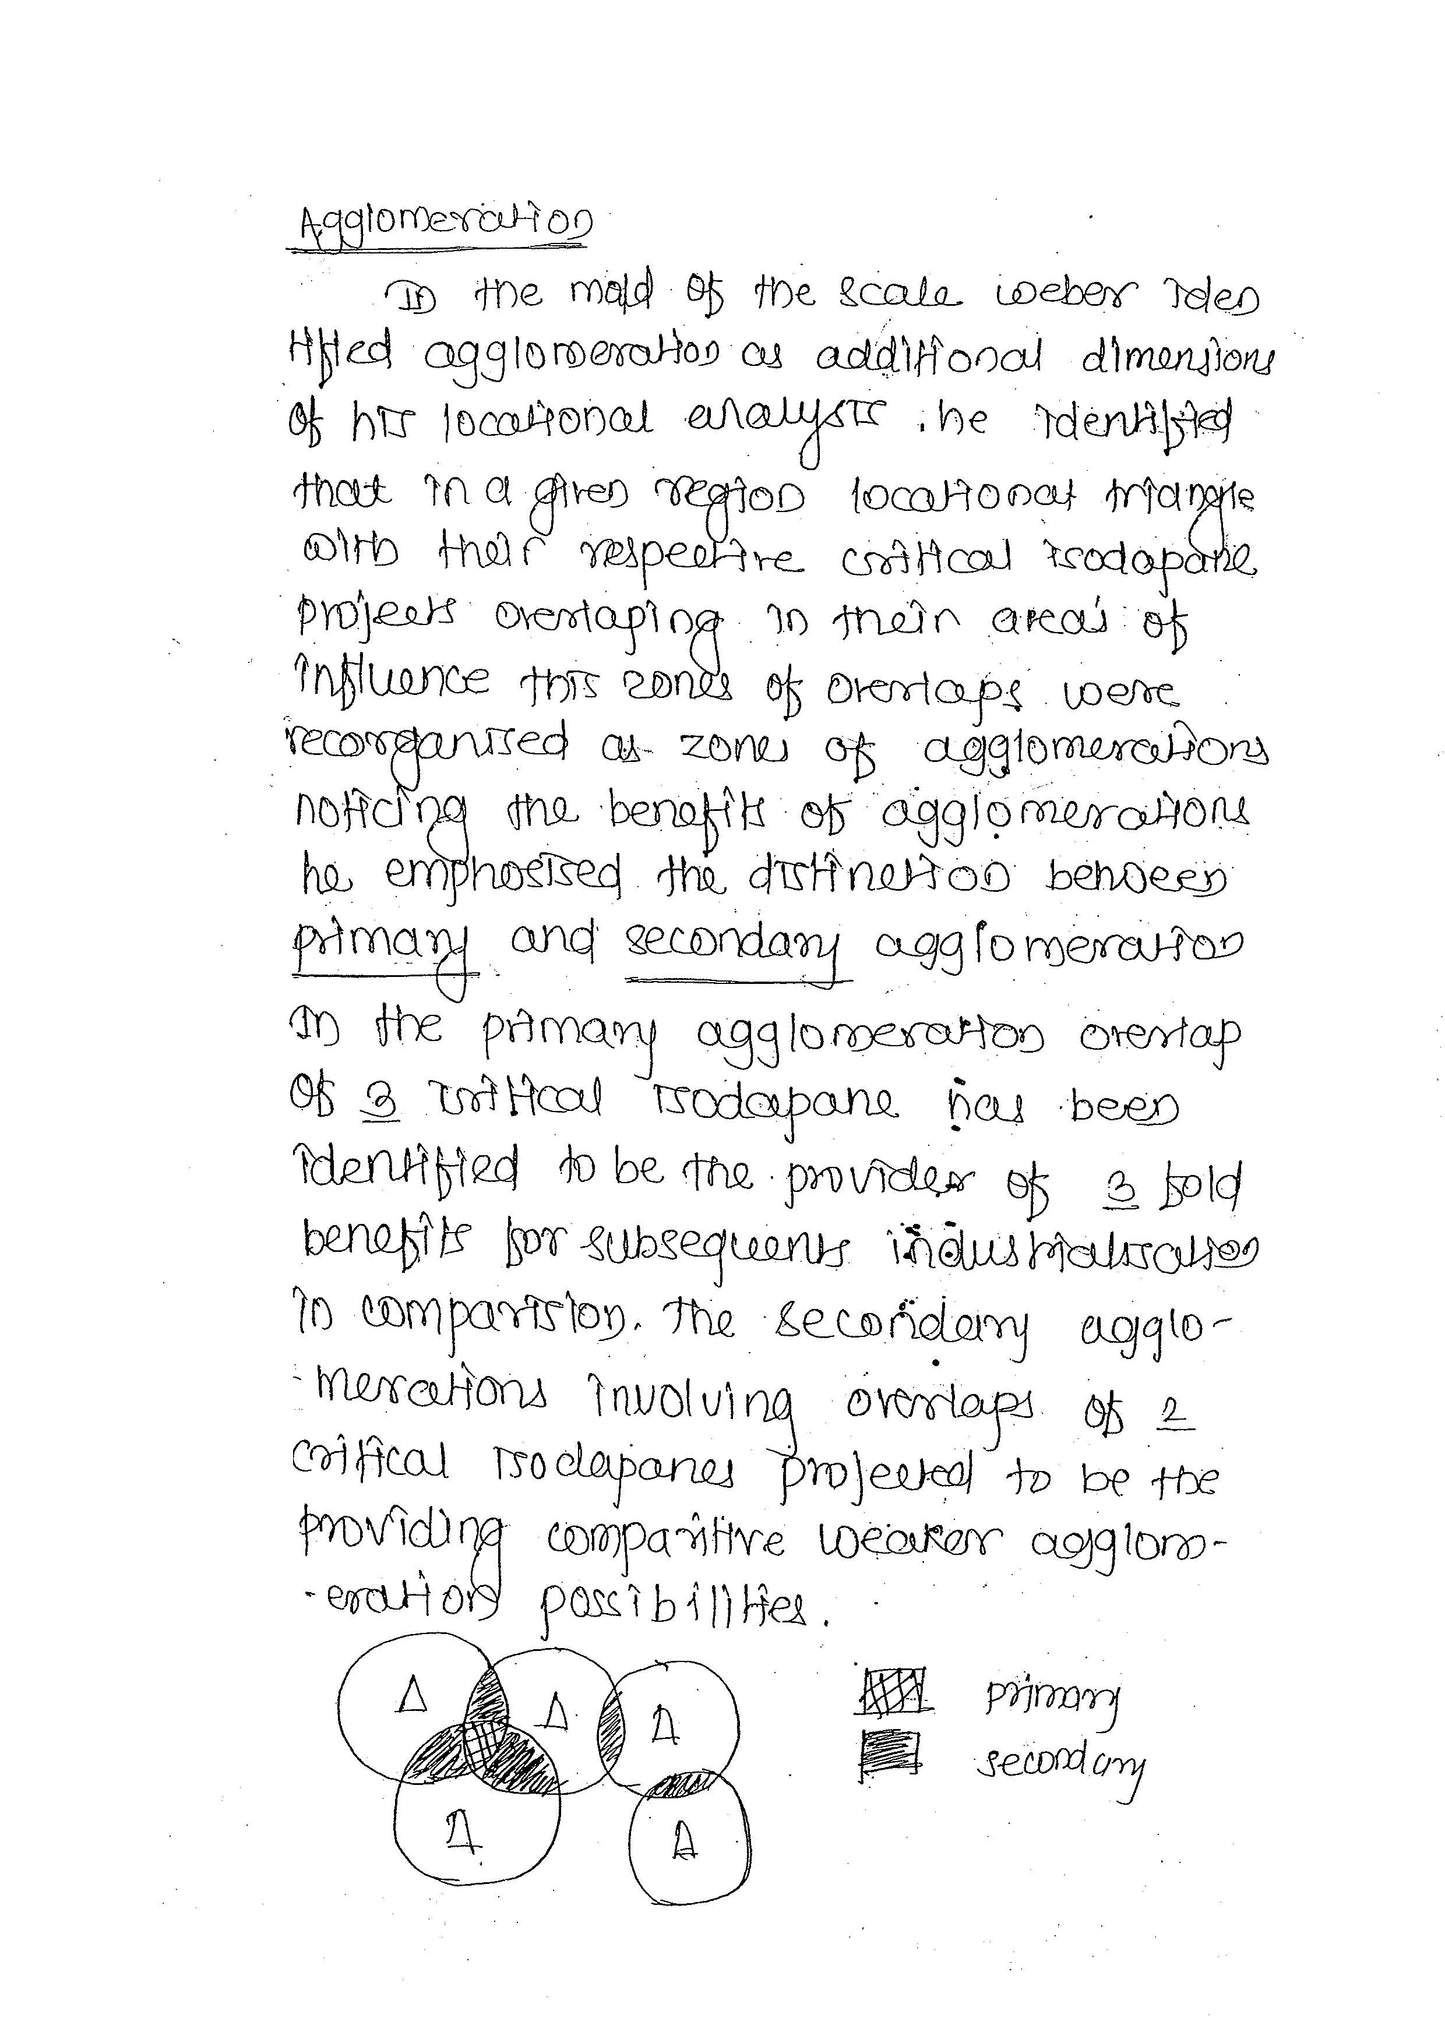 Agglomeration
In the mold of the scale weber iden
tified agglomeration as additional dimensions
of his locational analysis. he identified
that in a given region locational triangle
with their respective critical isodapane
projects overlaping in their area's of
influence this zones of overlaps were
recorganised as zones of agglomerations
noticing the benefits of agglomerations
he emphosised the distinction between
primary and secondary agglomeration
In the primary agglomeration overlap
of 3 critical isodapane has been
identified to be the provider of 3 fold
benefits for subsequents industrialisation
in comparision. The secondary agglo-
-merations involving overlaps of 2
critical isodapanes projected to be the
providing comparitive weaker agglom-
-erations possibilities.
primary
secondary